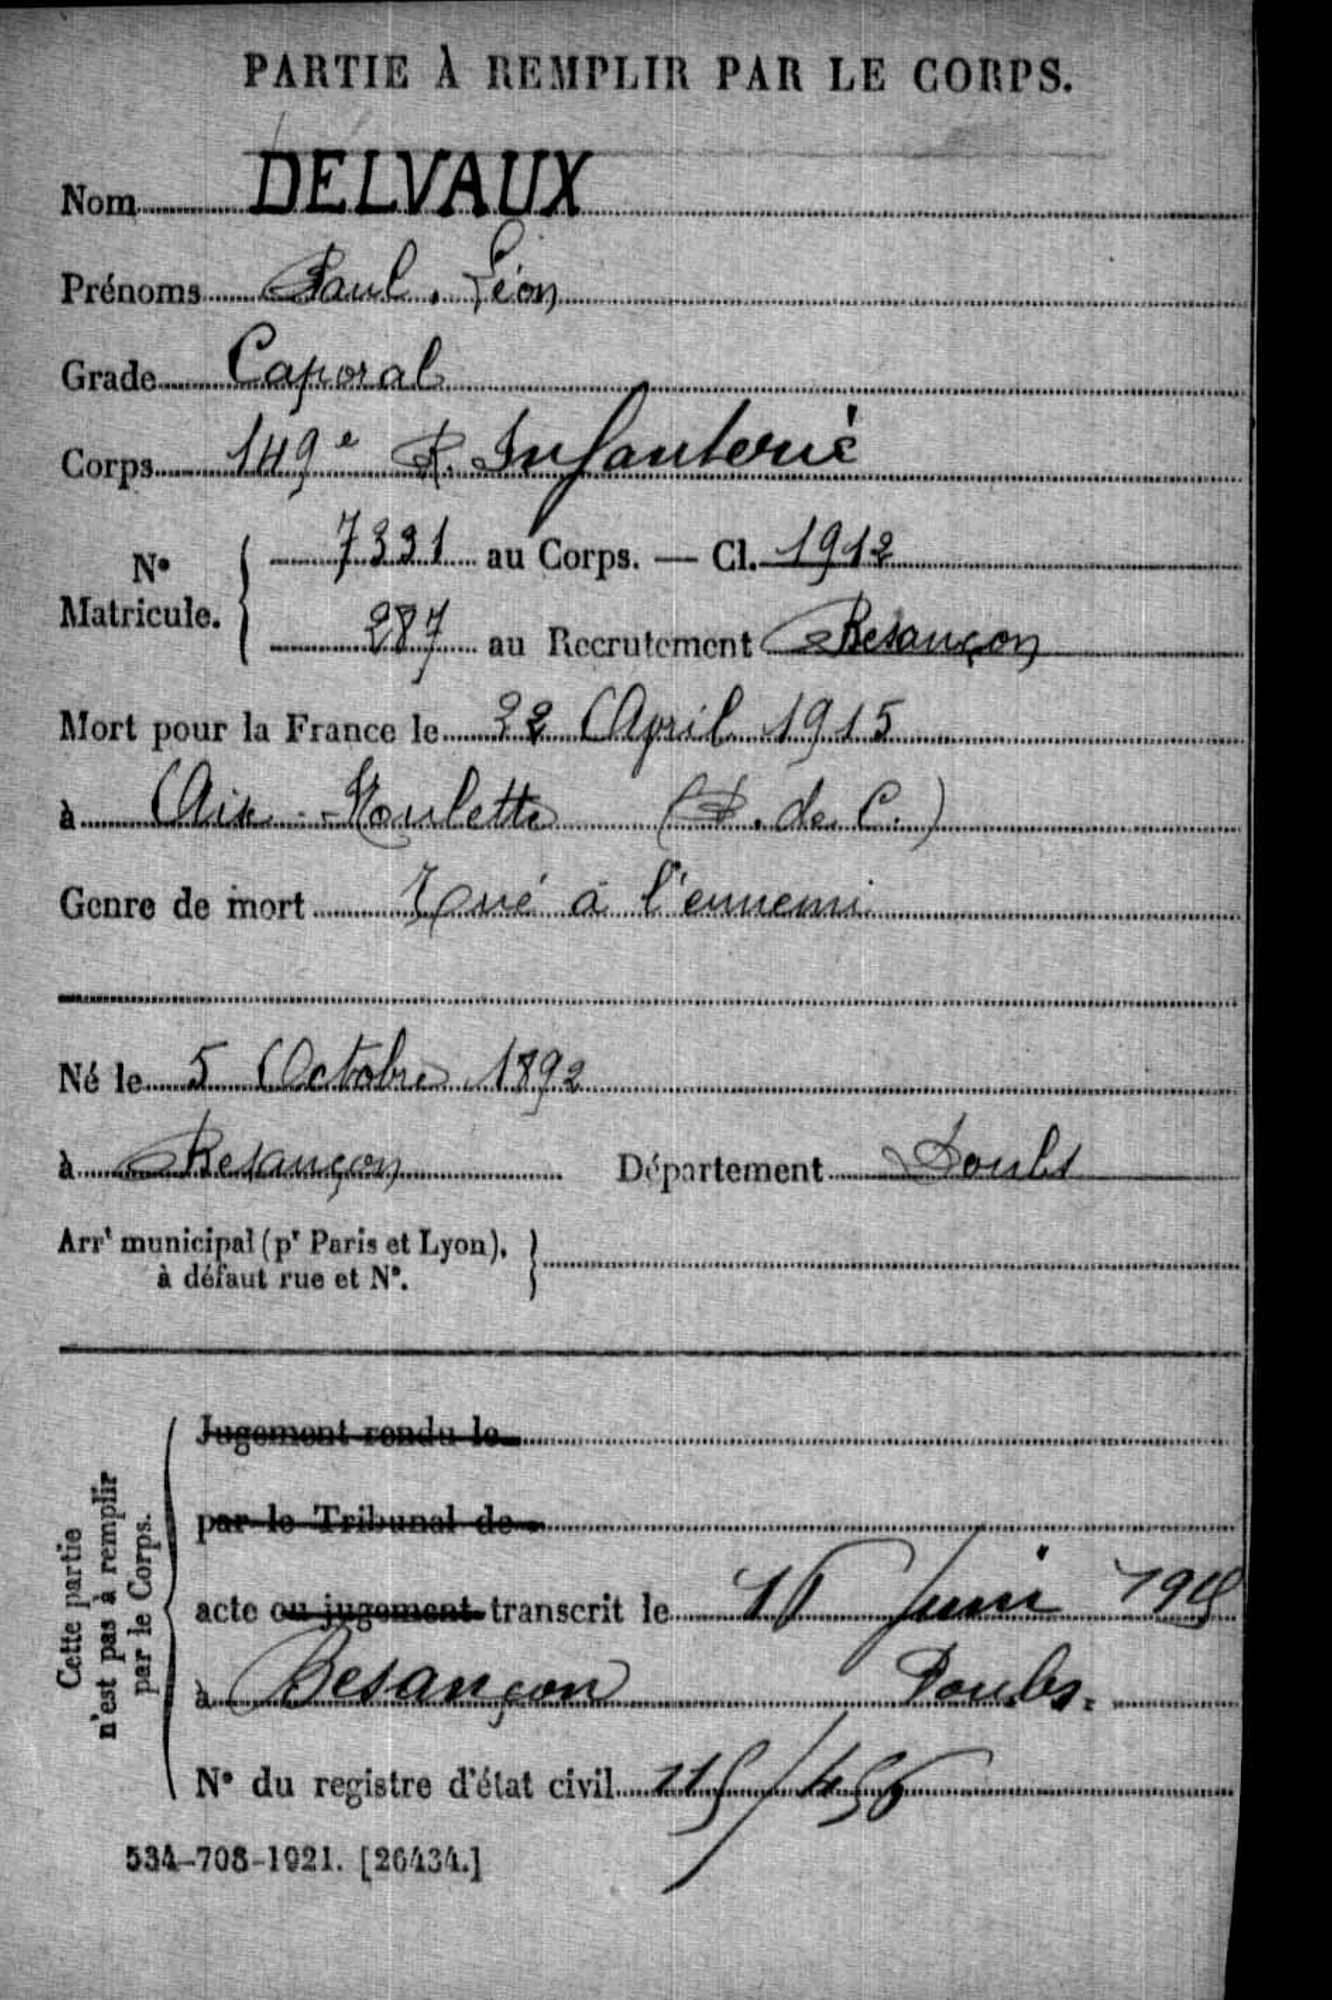 PARTIE À REMPLIR PAR LE CORPS.
Nom DELVAUX
Prénoms Paul. Léon
Grade Caporal
Corps 149e R. Infanterie
N° Matricule. 7331 au Corps. — Cl. 1912
287 au Recrutement Besançon
Mort pour la France le 22 April 1915
à Aix-Noulette (P. de C.)
Genre de mort Tué à l'ennemi
Né le 5 Octobre 1892
à Besançon Département Doubs
Arrt municipal (pr Paris et Lyon),
à défaut rue et N°.
Cette partie
n'est pas à remplir
par le Corps.
Jugement rendu le
par le Tribunal de
acte ou jugement transcrit le Juin
à Besançon Doubs.
N° du registre d'état civil 115/456
534-708-1921. [26434.]